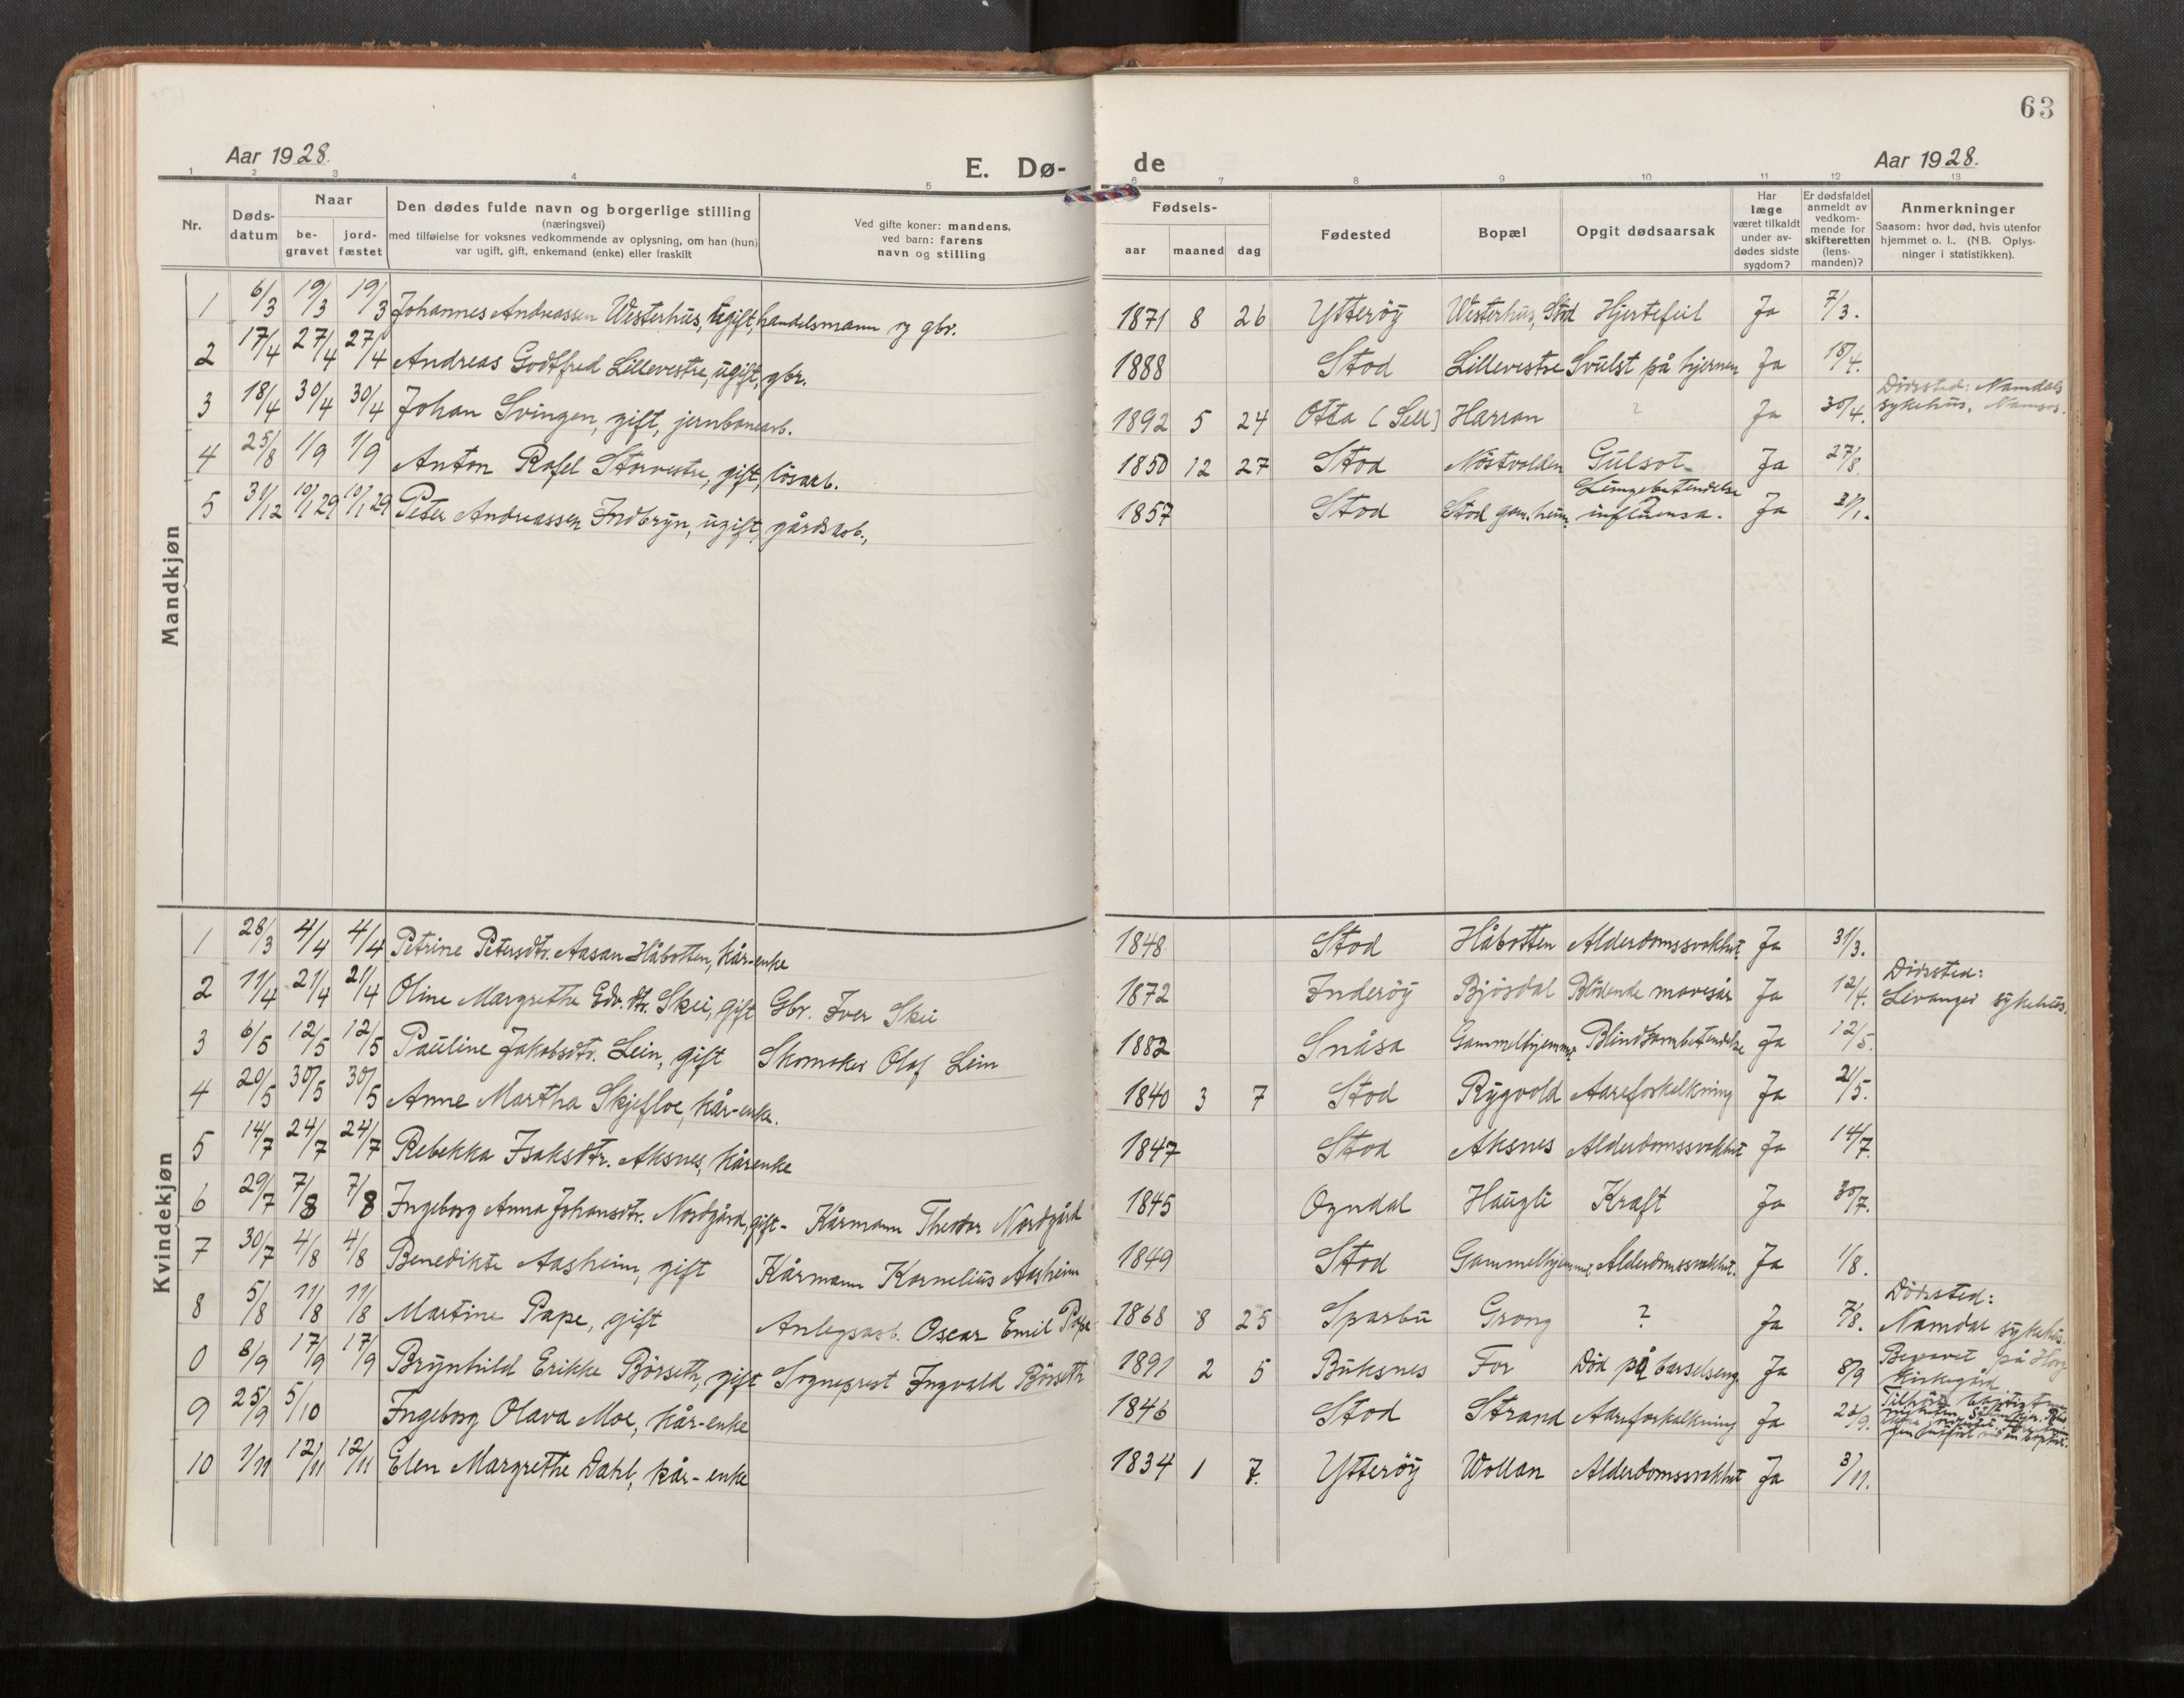 63
Aar 1928.
E. Dø-
de
Aar 1928.
1 2 3 4 5 6 7 8 9 10 11 12 13
Nr.
Døds-
datum
Naar
be-
gravet
jord-
fæstet
Den dødes fulde navn og borgerlige stilling
(næringsvei)
med tilføielse for voksnes vedkommende av oplysning, om han (hun)
var ugift, gift, enkemand (enke) eller fraskilt
Ved gifte koner: mandens,
ved barn: farens
navn og stilling
Fødsels-
aar maaned dag
Fødested
Bopæl
Opgit dødsaarsak
Har
læge
været tilkaldt
under av-
dødes sidste
sygdom?
Er dødsfaldet
anmeldt av
vedkom-
mende for
skifteretten
(lens-
manden)?
Anmerkninger
Saasom: hvor død, hvis utenfor
hjemmet o. l.. (NB. Oplys-
ninger i statistikken).
Mandkjøn
1 6/3 19/3 19/3 Johannes Andreassen Westerhus, ugift, handelsmann og gbr. 1871 8 26 Ytterøy Westerhus, Stod Hjertefeil Ja 7/3.
2 17/4 27/4 27/4 Andreas Godtfred Lillevestre, ugift, gbr. 1888 Stod Lillevestre Svulst på hjernen Ja 18/4.
3 18/4 30/4 30/4 Johan Svingen, gift, jernbanearb. 1892 5 24 Otta (Sell) Harran ? Ja 30/4. Dødssted: Namdals
sykehus, Namsos.
4 25/8 1/9 1/9 Anton Rafel Storvestre, gift, løsarb. 1850 12 27 Stod Nøstvolden Gulsot Ja 27/8.
5 31/12 10/1 29 10/1 29 Peter Andreassen Indbryn, ugift, gårdsarb., 1857 Stod Stod gam.heim Lungebetendelse
influensa. Ja 2/1.
Kvindekjøn
1 28/3 4/4 4/4 Petrine Petersdtr. Aasan Håbotten, kår-enke 1848 Stod Håbotten Alderdomssvakhet Ja 31/3.
2 11/4 21/4 21/4 Oline Margrethe Edv.dtr. Skei, gift Gbr. Iver Skei 1872 Inderøy Bjøsdal Blødende mavesår Ja 12/4. Dødssted:
Levanger sykehus.
3 6/5 12/5 12/5 Pauline Jakobsdtr. Lein, gift Skomaker Olaf Lein 1882 Snåsa Gammelhjemmet Blindtarmbetendelse Ja 12/5.
4 20/5 30/5 30/5 Anne Martha Skjefloe, kår-enke. 1840 3 7 Stod Rygvold Aareforkalkning Ja 21/5.
5 14/7 24/7 24/7 Rebekka Isaksdtr. Aksnes, kårenke 1847 Stod Aksnes Alderdomssvakhet Ja 14/7.
6 29/7 7/8 7/8 Ingeborg Anna Johansdtr. Nordgård, gift - Kårmann Theodor Nordgård 1845 Ogndal Haugli Kræft Ja 30/7.
7 30/7 4/8 4/8 Benedikte Aasheim, gift Kårmann Kornelius Aasheim 1849 Stod Gammelhjemmet Alderdomssvakhet. Ja 1/8.
8 5/8 11/8 11/8 Martine Pape, gift Anlegsarb. Oscar Emil Pape 1868 8 25 Sparbu Grong ? Ja 7/8. Dødssted:
Namdal sykehus.
0 8/9 17/9 17/9 Brynhild Erikke Børseth, gift Sogneprest Ingvald Børseth 1891 2 5 Buksnes For Død på barselseng Ja 8/9 Begravet på
Kirkegård
9 25/9 5/10 Ingeborg Olava Moe, kår-enke 1846 Stod Strand Aareforkalkning Ja
10 1/11 12/11 12/11 Elen Margrethe Dahl, kår-enke 1834 1 7. Ytterøy Wollan Alderdomssvakhet Ja 3/11.